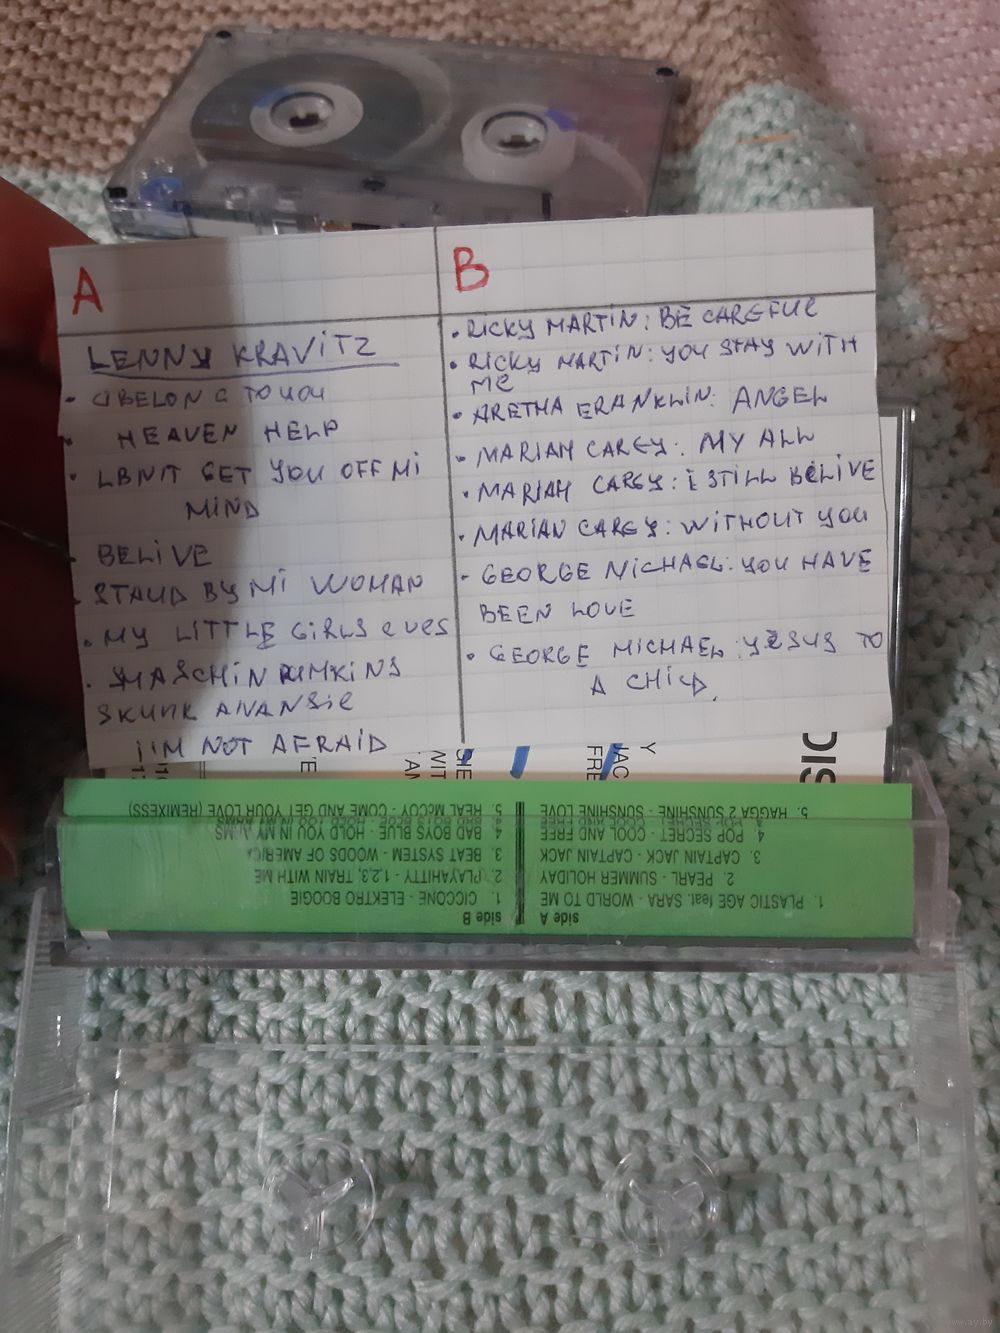 A
LENNY KRAVITZ
• BELONG TO YOU
• HEAVEN HELP
• GET YOU OFF MI
MIND
• BELIVE
• STAUD BY MI WOMAN
• MY LITTLE GIRLS eyes
• SMASCHIN PUMKINS
SKUNK ANANSie
I'M NOT AFRAID
B
• RICKY MARTIN: BE CAREFUL
• RICKY MARTIN: YOU STAY WITH
ME
• ARETHA FRANKLIN: ANGEL
• MARIAH CAREY: MY ALL
• MARIAH CAREY: I STILL BELIVE
• MARIAH CAREY: WITHOUT YOU
• GEORGE MICHAEL: YOU HAVE
BEEN LOVE
• GEORGE MICHAEL: YESUS TO
A CHILD.
DIS
side A
1. PLASTIC AGE feat. SARA - WORLD TO ME
2. PEARL - SUMMER HOLIDAY
3. CAPTAIN JACK - CAPTAIN JACK
4. POP SECRET - COOL AND FREE
5. RAGGA 2 SUNSHINE - SUNSHINE LOVE
side B
1. CICCONE - ELEKTRO BOOGIE
2. PLAYAHITTY - 1,2,3, TRAIN WITH ME
3. BEAT SYSTEM - WOODS OF AMERICA
4. BAD BOYS BLUE - HOLD YOU IN MY ARMS
5. REAL McCOY - COME AND GET YOUR LOVE (REMIXESS)
www.ay.by